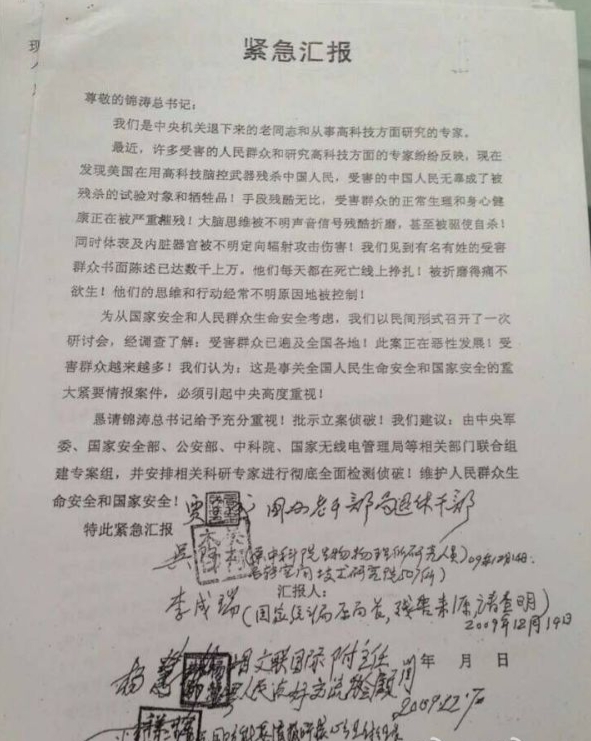 紧急汇报
尊敬的锦涛总书记：
我们是中央机关退下来的老同志和从事高科技方面研究的专家。
最近，许多受害的人民群众和研究高科技方面的专家纷纷反映，现在
发现美国在用高科技脑控武器残杀中国人民，受害的中国人民无辜成了被
残杀的试验对象和牺牲品！手段残酷无比，受害群众的正常生理和身心健
康正在被严重摧残！大脑思维被不明声音信号残酷折磨，甚至被驱使自杀！
同时体表及内脏器官被不明定向辐射攻击伤害！我们见到有名有姓的受害
群众书面陈述已达数千上万，他们每天都在死亡线上挣扎！被折磨得痛不
欲生！他们的思维和行动经常不明原因地被控制！
为从国家安全和人民群众生命安全考虑，我们以民间形式召开了一次
研讨会，经调查了解：受害群众已遍及全国各地！此案正在恶性发展！受
害群众越来越多！我们认为：这是事关全国人民生命安全和国家安全的重
大紧要情报案件，必须引起中央高度重视！
恳请锦涛总书记给予充分重视！批示立案侦破！我们建议：由中央军
委、国家安全部、公安部、中科院、国家无线电管理局等相关部门联合组
建专案组，并安排相关科研专家进行彻底全面检测侦破！维护人民群众生
命安全和国家安全！
老干部局退休干部
特此紧急汇报
吴 中科院生物物理所研究人员)09年12月14日
空间技术研究院501所)
汇报人：
李成瑞(国家统计局原局长,
2009年12月19日
年 月 日
杨 文联国际
人民友好交流 顾问